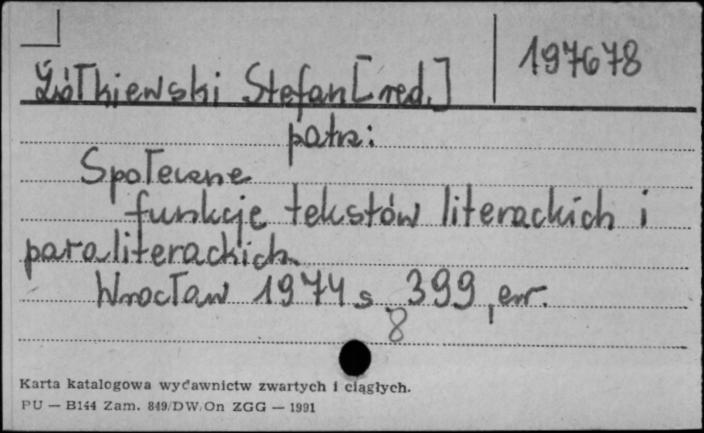 197678
Żółkiewski Stefan [red.]
patrz:
Społeczne
funkcje tekstów literackich i
paraliterackich.
Wrocław 1974 s 399, err.
8
Karta katalogowa wydawnictw zwartych i ciągłych.
PU — B144 Zam. 849/DW/On ZGG — 1991